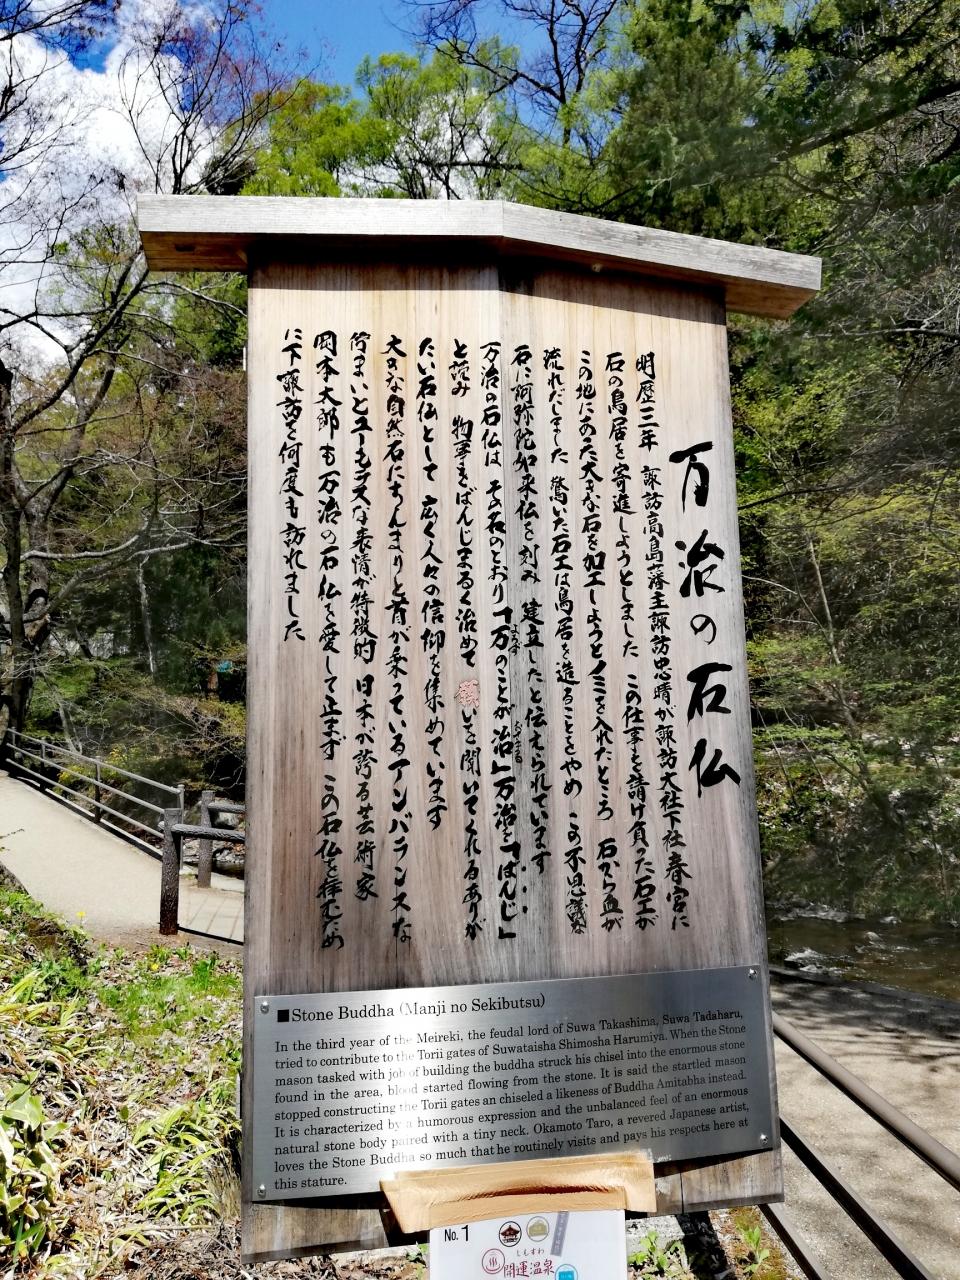 万治の石仏
明歴三年 諏訪高島藩主諏訪忠晴が諏訪大社下社春宮に
石の鳥居を寄進しようとしました この仕事を請け負った石工が
この地にあった大きな石を加工しようとノミを入れたところ 石から血が
流れだしました 驚いた石工は鳥居を造ることをやめ この不思議な
石に阿弥陀如来仏を刻み 建立したと伝えられています
万治の石仏は その名のとおり「万のことが治」万治を「ばんじ」
よろず
おさまる
と読み 物事をばんじまるく治めて 願いを聞いてくれるありが
たい石仏として 広く人々の信仰を集めています
大きな自然石にちんまりと首が乗っているアンバランスな
佇まいとユーモラスな表情が特徴的 日本が誇る芸術家
岡本太郎も万治の石仏を愛して止まず この石仏を拝むため
に下諏訪を何度も訪れました
■Stone Buddha (Manji no Sekibutsu)
In the third year of the Meireki, the feudal lord of Suwa Takashima, Suwa Tadaharu,
tried to contribute to the Torii gates of Suwataisha Shimosha Harumiya. When the Stone
mason tasked with job of building the buddha struck his chisel into the enormous stone
found in the area, blood started flowing from the stone. It is said the startled mason
stopped constructing the Torii gates an chiseled a likeness of Buddha Amitabha instead.
It is characterized by a humorous expression and the unbalanced feel of an enormous
natural stone body paired with a tiny neck. Okamoto Taro, a revered Japanese artist,
loves the Stone Buddha so much that he routinely visits and pays his respects here at
this stature.
No. 1
しもすわ
開運温泉